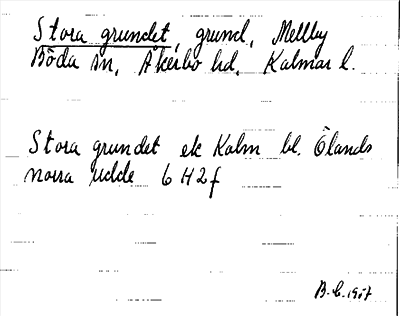 Stora grundet, grund, Mellby
Böda sn, Åkerbo hd, Kalmar l.
Stora grundet ek Kalm bl. Ölands
norra udde 6 H2f
B.C. 1957